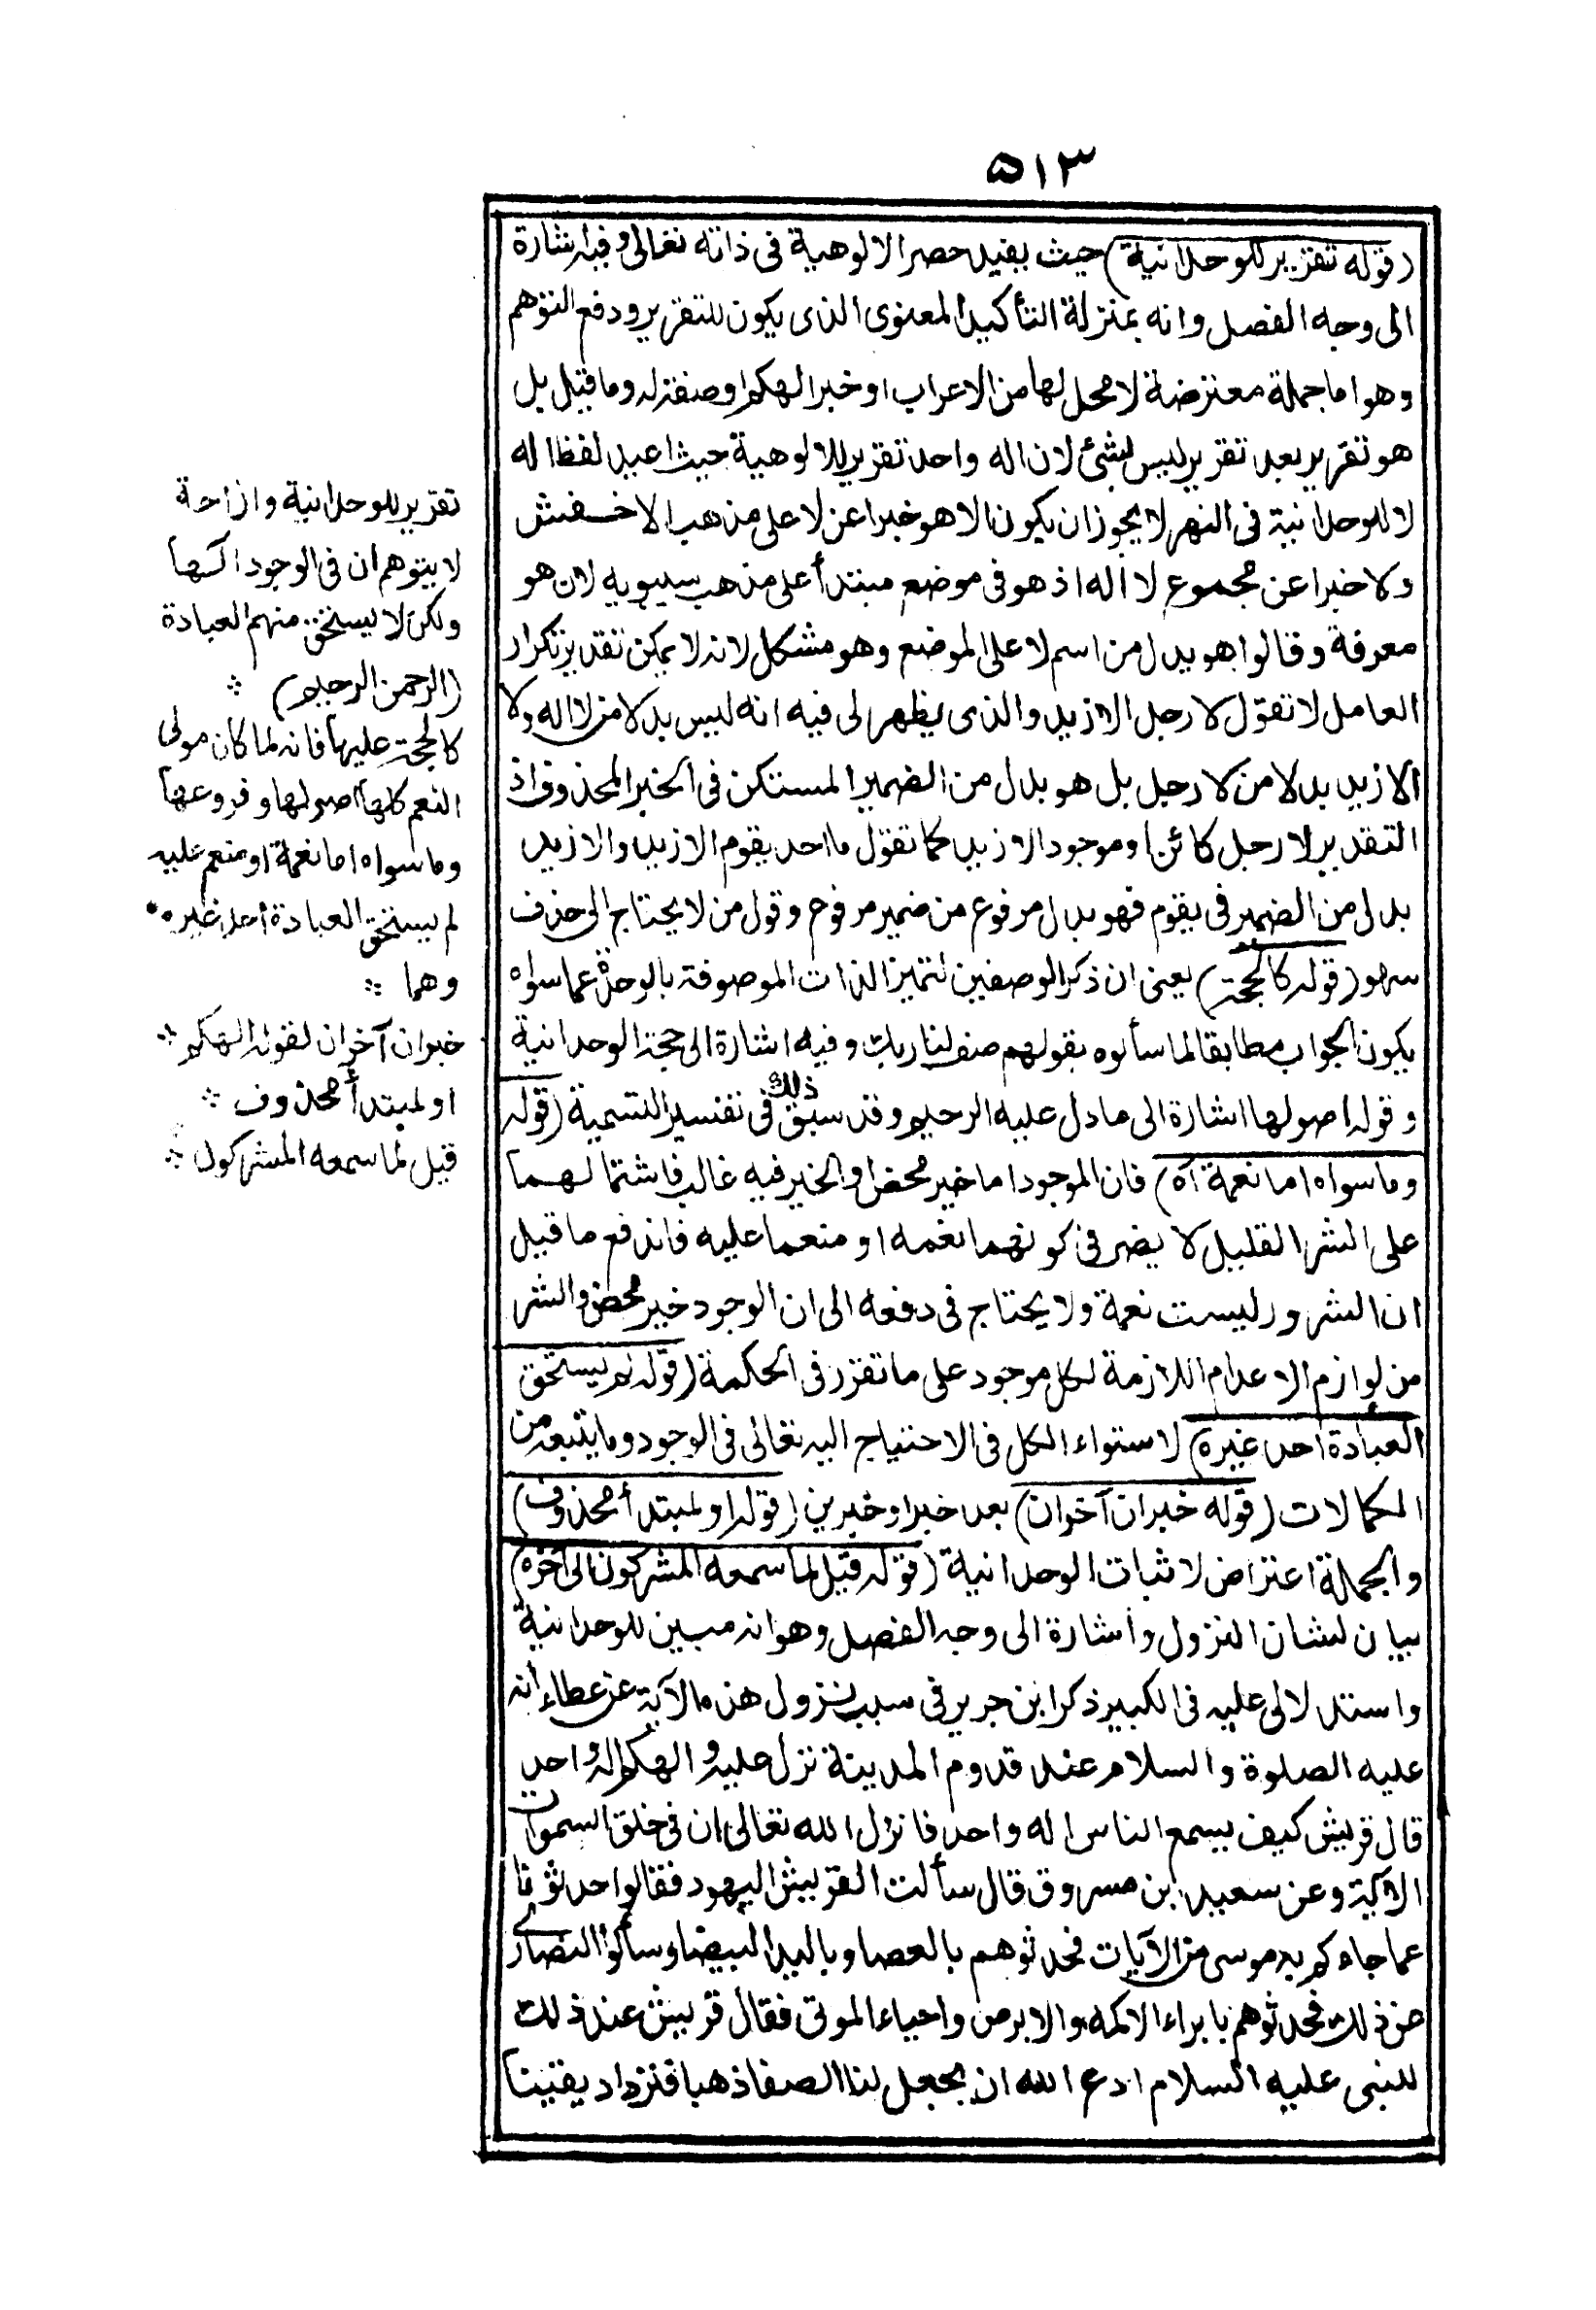 ٥١٣
(قوله تقرير للوحدانية) حيث يفيد حصر الالوهية فى ذاته تعالى وفيه اشارة
الى وجه الفصل وانه بمنزلة التأكيد المعنوى الذى يكون للتقرير ودفع التوهم
وهو اما جملة معترضة لا محل لها من الاعراب او خبر الهكم او صفة له وما قيل بل
هو تقرير بعد تقرير ليس بشئ لان اله واحد تقرير للالوهية حيث اعيد لفظ اله
لا للوحدانية فى النهر لا يجوز ان يكون الا هو خبرا عن لا على مذهب الاخفش
ولا خبرا عن مجموع لا اله اذ هو فى موضع مبتدأ على مذهب سيبويه لان هو
معرفة وقالوا هو بدل من اسم لا على الموضع وهو مشكل لانه لا يمكن تقدير تكرار
العامل لا تقول لا رجل الا زيد والذى يظهر لى فيه انه ليس بدلا من لا اله ولا
الا زيد بدلا من لا رجل بل هو بدل من الضمير المستكن فى الخبر المحذوف اذ
التقدير لا رجل كائن او موجود الا زيد كما تقول ما احد يقوم الا زيد والا زيد
بدل من الضمير فى يقوم فهو بدل مرفوع من ضمير مرفوع وقول من لا يحتاج الى حذف
سهو (قوله كالحجة) يعنى ان ذكر الوصفين لتميز الذات الموصوفة بالوحدة عما سواه
يكون الجواب مطابقا لما سألوه بقولهم صف لنا ربك وفيه اشارة الى حجة الوحدانية
وقوله اصولها اشارة الى ما دل عليه الرحيم وقد سبق ذلك فى تفسير التسمية (قوله
وما سواه اما نعمة آه) فان الموجود اما خير محض او الخير فيه غالب فاشتمالهما
على الشر القليل لا يضر فى كونهما نعمه او منعما عليه فاندفع ما قيل
ان الشرور ليست نعمة ولا يحتاج فى دفعه الى ان الوجود خير محض والشر
من لوازم الاعدام اللازمة لكل موجود على ما تقرر فى الحكمة (قوله لم يستحق
العبادة احد غيره) لاستواء الكل فى الاحتياج اليه تعالى فى الوجود وما يتبعه من
الكمالات (قوله خبران آخران) بعد خبر او خبرين (قوله او لمبتدأ محذوف)
والجملة اعتراض لاثبات الوحدانية (قوله قيل لما سمعه المشركون الى آخره)
بيان لشان النزول واشارة الى وجه الفصل وهو انه مبين للوحدانية
واستدلالى عليه فى الكبير ذكر ابن جرير فى سبب نزول هذه الآية عن عطاء انه
عليه الصلوة والسلام عند قدوم المدينة نزل عليه والهكم اله واحد
قال قريش كيف يسمع الناس اله واحد فانزل الله تعالى ان فى خلق السموات
الآية وعن سعيد بن مسروق قال سألت القريش اليهود فقالوا حدثونا
عما جاءكم به موسى من الآيات فحدثوهم بالعصا وباليد البيضا وسألوا النصارى
عن ذلك فحدثوهم بابراء الاكمه والابرص واحياء الموتى فقال قريش عند ذلك
للنبى عليه السلام ادع الله ان يجعل لنا الصفا ذهبا فنزداد يقينا
تقرير للوحدانية وازاحة
لا يتوهم ان فى الوجود الها
ولكن لا يستحق منهم العبادة
(الرحمن الرحيم) ؞
كالحجة عليها فانه لما كان مولى
النعم كلها اصولها وفروعها
وما سواه اما نعمة او منعم عليه
لم يستحق العبادة احد غيره
وهما ؞
خبران آخران لقوله الهكم ؞
او لمبتدأ محذوف ؞
قيل لما سمعه المشركون ؞